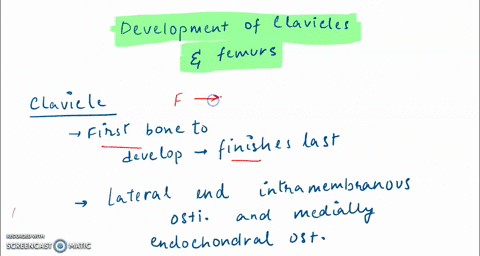 Development of Clavicles
& femurs
Clavicle F →
→ First bone to
develop → finishes last
→ Lateral end intramembranous
osti. and medially
endochondral ost.
RECORDED WITH
SCREENCAST MATIC